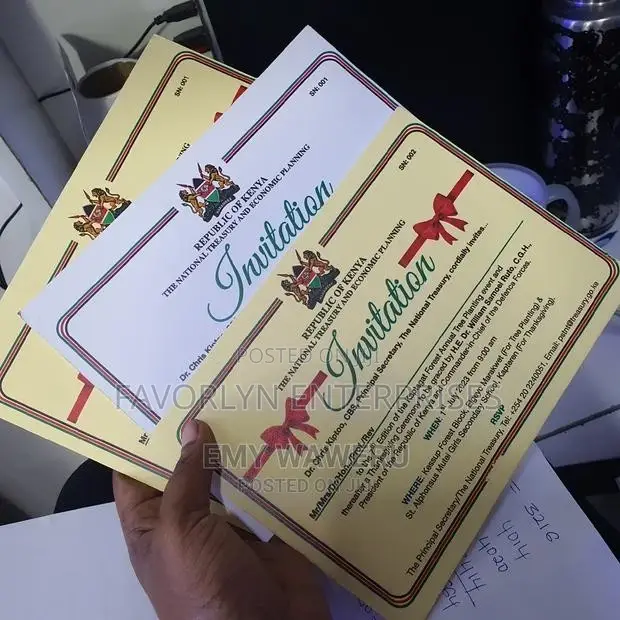 SN: 001
SN: 001
REPUBLIC OF KENYA
THE NATIONAL TREASURY AND ECONOMIC PLANNING
Invitation
Dr. Chris
SN: 002
REPUBLIC OF KENYA
THE NATIONAL TREASURY AND ECONOMIC PLANNING
Invitation
Dr. Chris Kiptoo, CBS, Principal Secretary, The National Treasury, cordially invites...
Mr/Mrs/Ms/Hon/Dr/Prof/Rev
to the Third Edition of the Kaptagat Forest Annual Tree Planting event and
thereafter a Thanksgiving Ceremony to be graced by H.E. Dr. William Samoei Ruto, C.G.H.,
President of the Republic of Kenya and Commander-in-Chief of the Defence Forces.
WHEN: July 2023 from 9:00 am
WHERE: Kessup Forest Block, Elgeyo Marakwet (For Tree Planting) &
St. Alphonsus Mutei Girls Secondary School, Kapteren (For Thanksgiving).
RSVP
The Principal Secretary/The National Treasury Tel: +254 20 2240051, Email: pstnt@treasury.go.ke
POSTED ON
FAVORLYN ENTERPRISES
EMY WAWERU
POSTED ON JI
= 3216
4014
4020